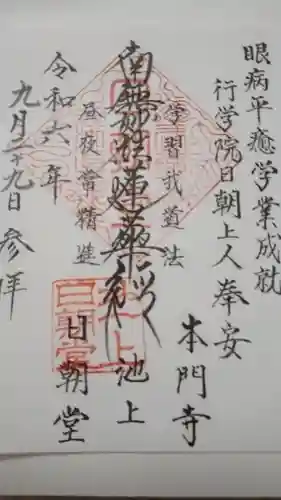 眼病平癒学業成就
行学院日朝上人奉安
本門寺
学習我道法
南無妙法蓮華経
池上
昼夜常精進
日朝堂
令和六年
九月二十九日参拝